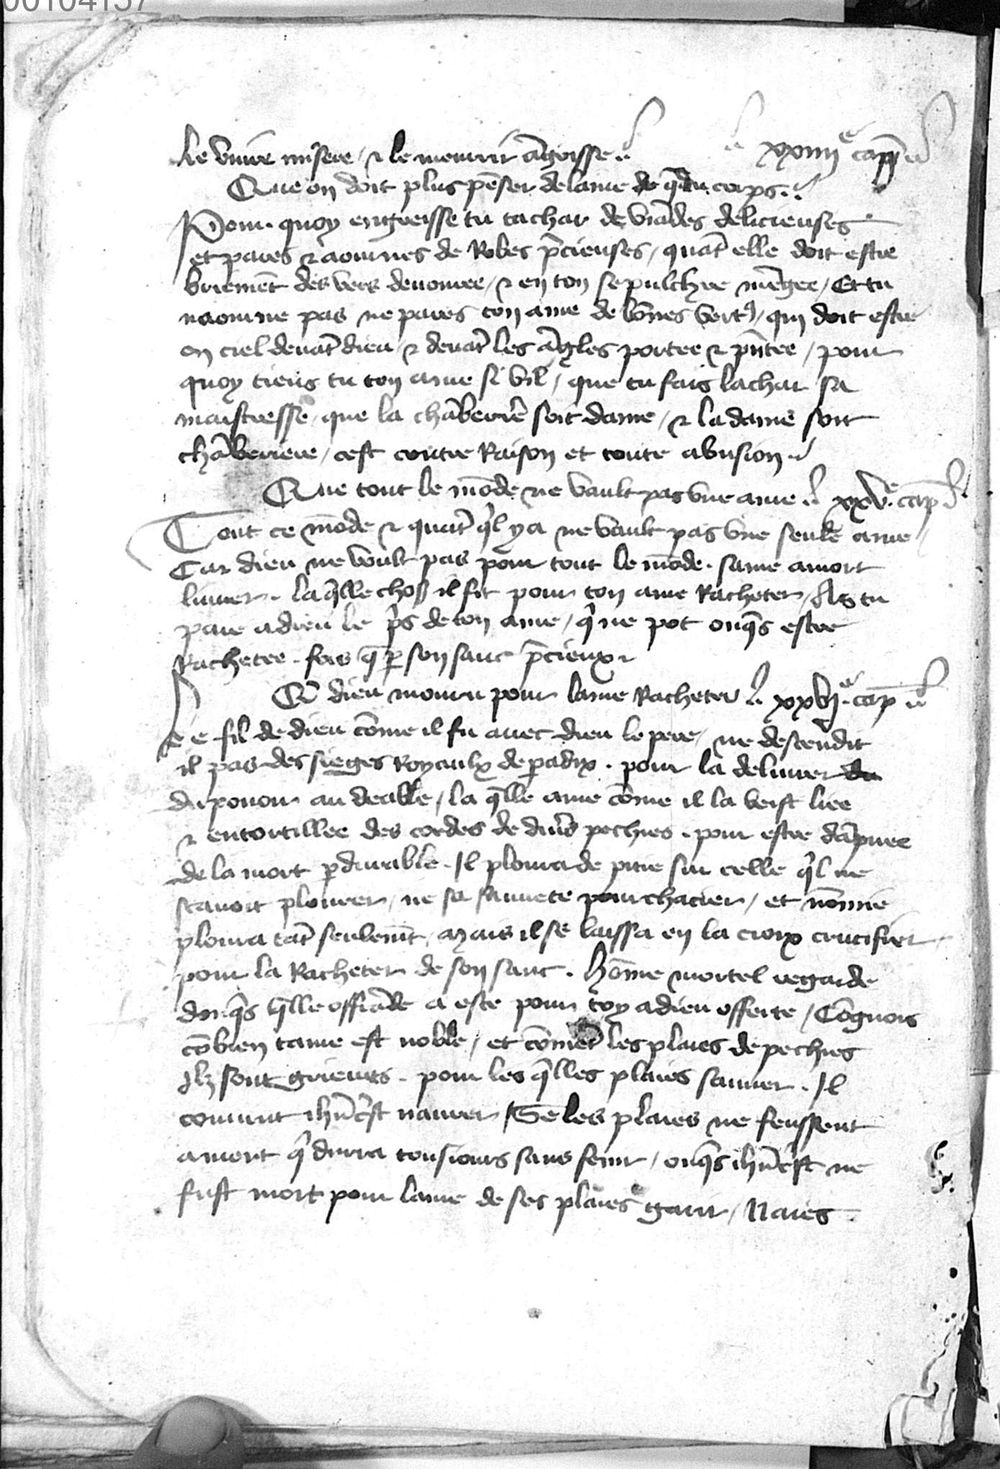 00104137
le vivre misere / ⁊ le mourir āgoisse xxiiiiᵉ cappᵉ
Que on doit plus pēser de lame de q̄ du corps.
Pour quoy engresse tu ta char de viādes delicieuses
et pares ⁊ aournes de Robes p̄cieuses / quāt elle doit estre
briemēt des vers devouree / ⁊ en ton sepulchre mēgee / Et tu
naourne pas ne pares ton ame de bōnes vertꝰ / qui doit estre
en ciel devāt dieu ⁊ devāt les āgles portee ⁊ p̄ntee / pour
quoy tiens tu ton ame si vil / que tu fais la char sa
maistresse / que la chāberiere soit dame / ⁊ la dame soit
chāberiere / cest contre Raison et toute abusion.
Que tout le mōde ne vault pas une ame xxvᵉ cap
Tout ce mōde ⁊ quāt q̄l y a ne vault pas une seule ame
Car dieu ne voult pas pour tout le mōde same a mort
livrer. la q̄lle chose il fit pour ton ame Racheter / As tu
paie a dieu le p̄s de ton ame / q̄ ne pot onq̄s estre
Rachetee. fors q̄ ꝑ son sanc p̄cieux
Q̄ dieu mouru pour lame Racheter xxvjᵉ cap
Le fil de dieu cōme il fu avec dieu le pere / ne descendit
il pas des sieges Royaulx de ꝑadix. pour la delivrer du
du povoir au deable / la q̄lle ame cōme il la veist liee
⁊ entortillee des cordes de divs pechies. pour estre dāpnee
de la mort ꝑdurable. Il ploura de pitie sur celle q̄l ne
scavoit plourer / ne sa sauvete pourchacier / et nōmie
ploura tāt seulemt / mais il se laissa en la croix crucifier
pour la Racheter de son sanc. hōme mortel regarde
donq̄s q̄lle offrāde a este pour toy a dieu offerte / Cōgnois
cōbien tame est noble / et cōmēt les plaies de pechies
Ilz sont griefves. pour les q̄lles plaies saner. Il
convint ih̄ucʳist navrer / Se les plaies ne feussent
a mort q̄ durra tousiours sans fenir / onq̄s ih̄ucʳist ne
fust mort pour lame de ses plaies garir / Naies